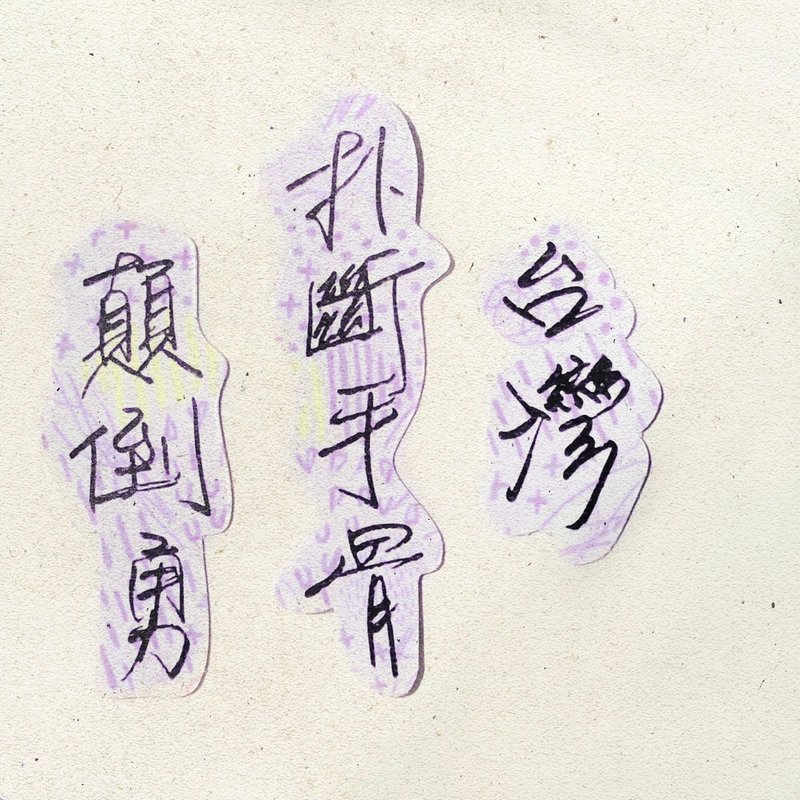 台灣
扑斷手骨
顛倒勇